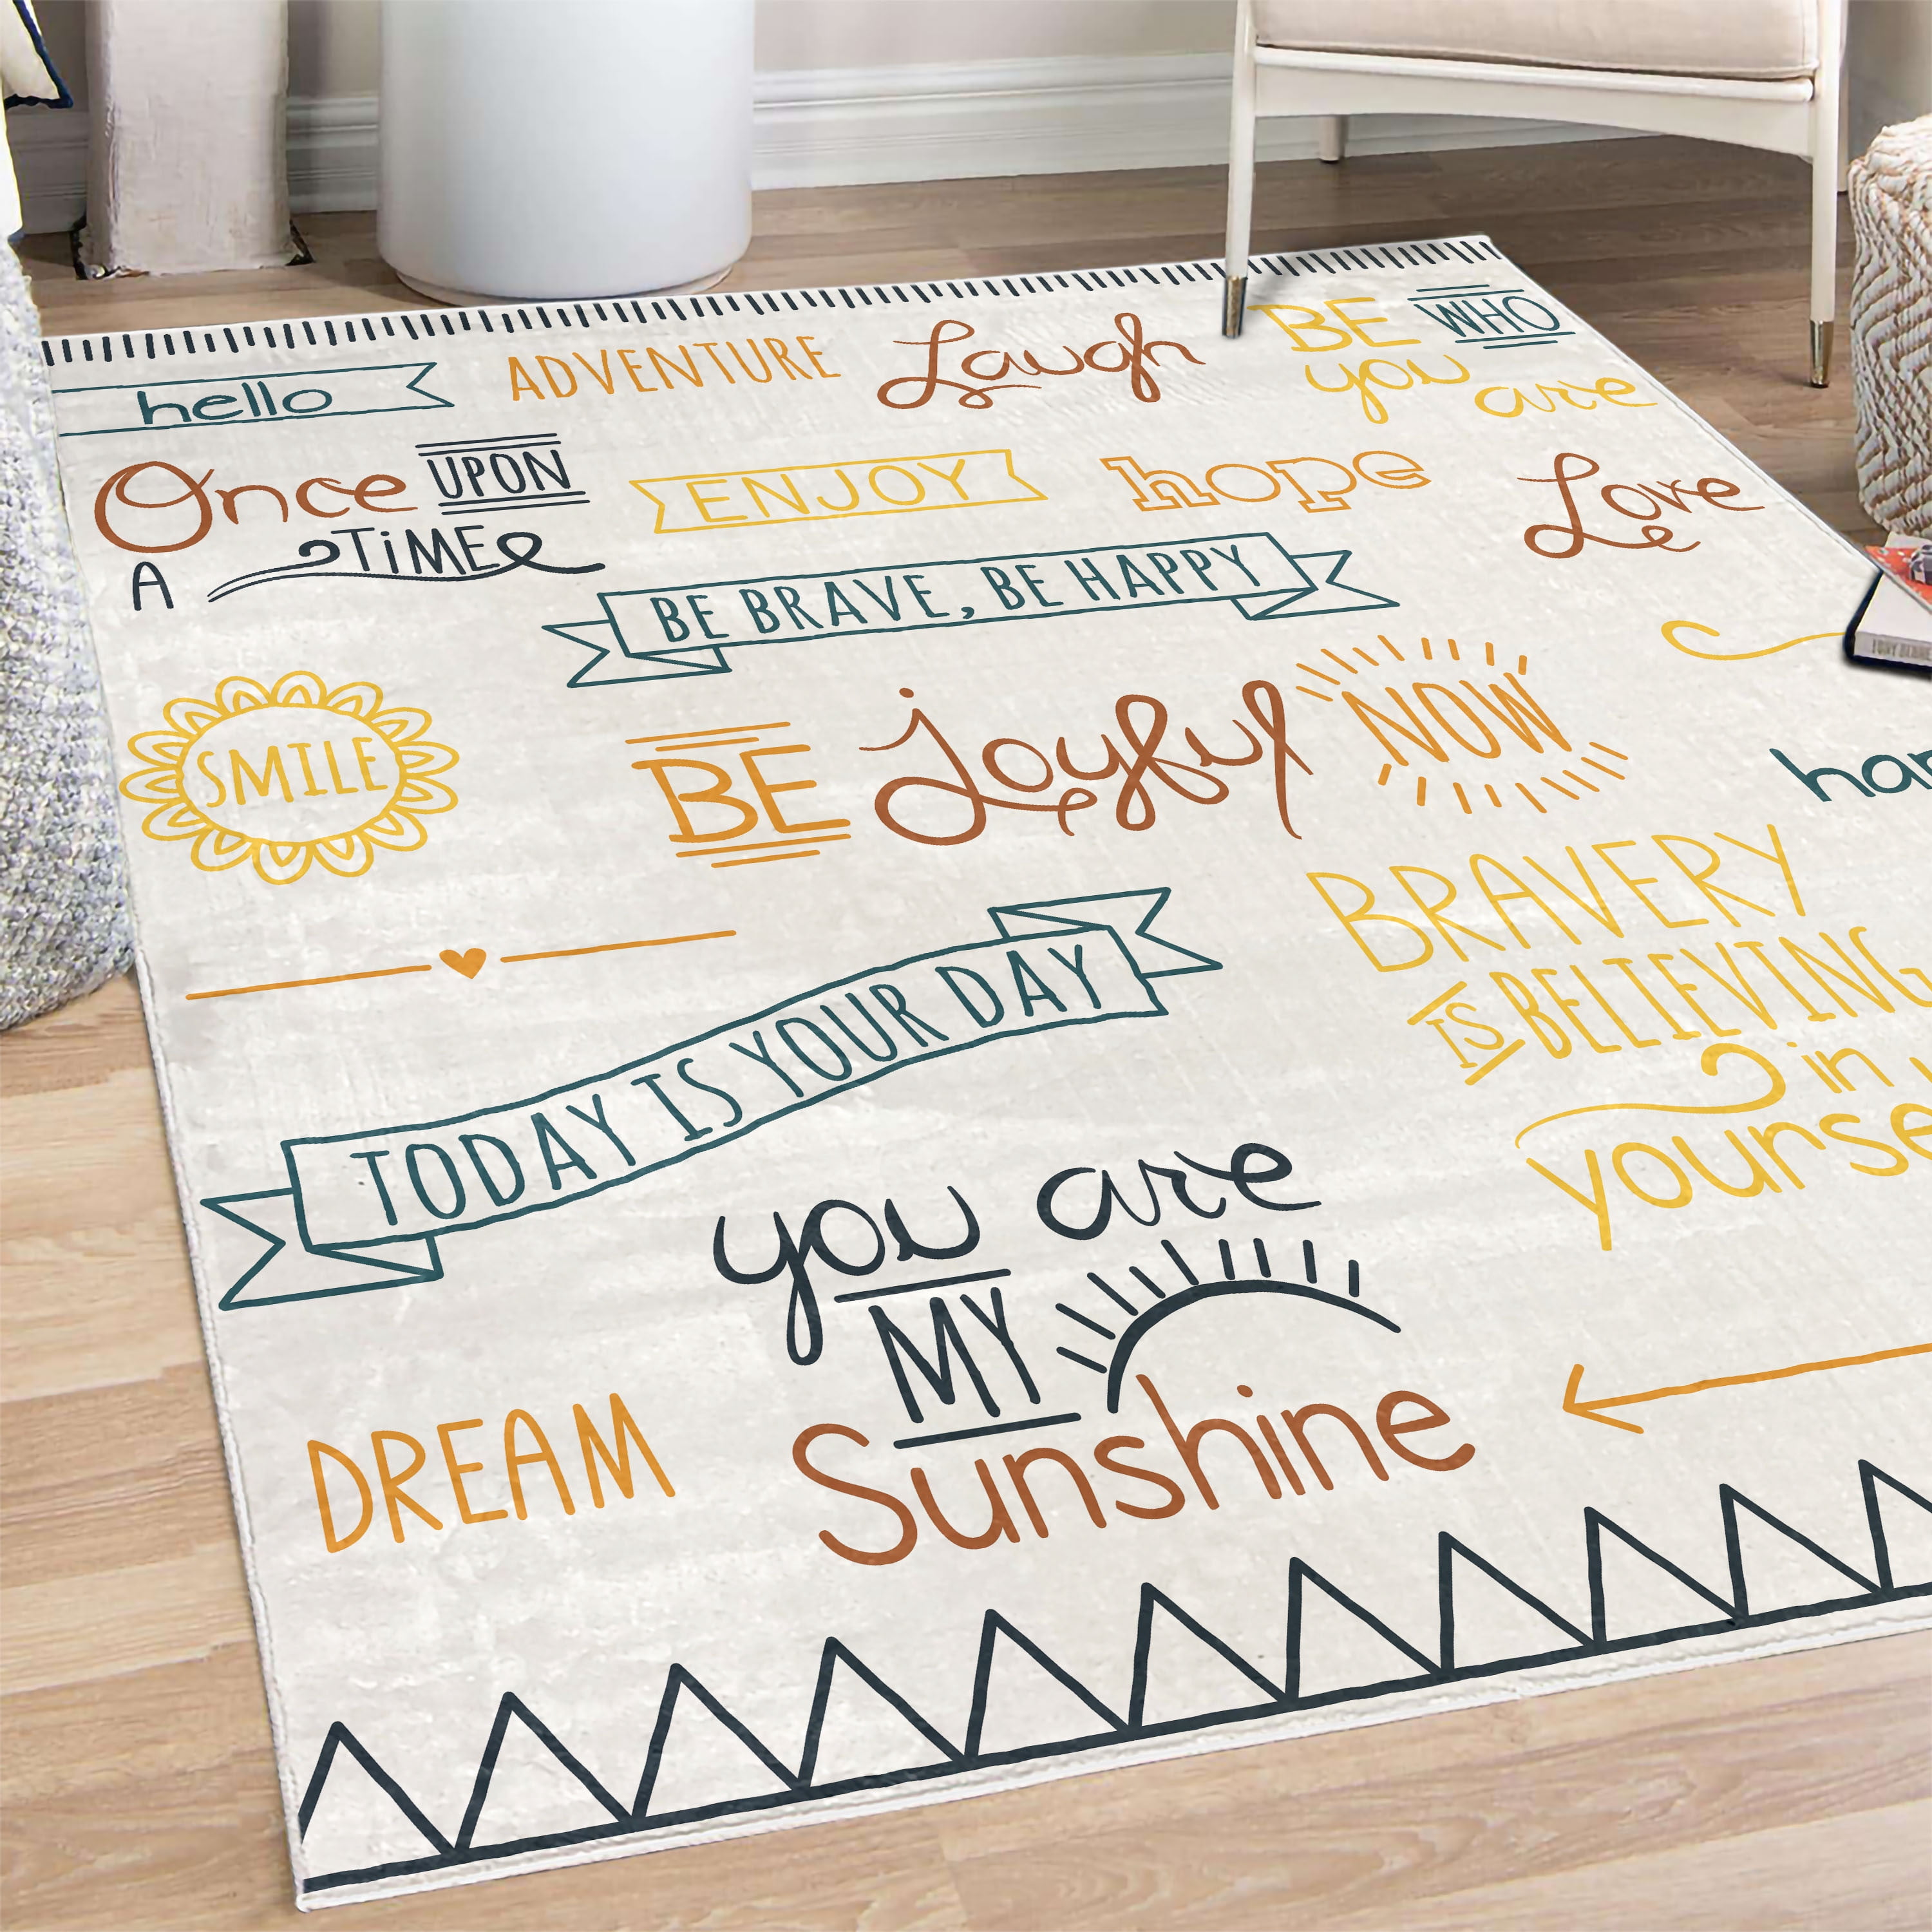 hello
ADVENTURE
Laugh
BE WHO
you are
Once UPON
A TiME
ENJOY
hope
Love
BE BRAVE, BE HAPPY
SMILE
BE Joyful NOW
TODAY IS YOUR DAY
BRAVERY
IS BELIEVING
in
you are
MY
Sunshine
DREAM